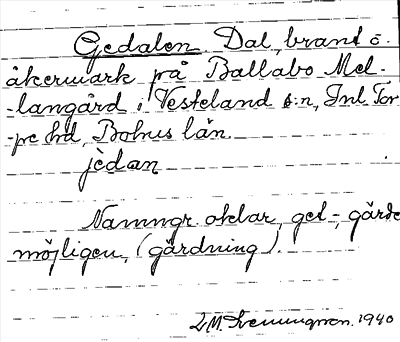 Gedalen. Dal, brant o.
åkermark på Ballabo Mel-
-langård i Vesteland s:n, Inl. Tor-
-pe hd, Bohus län.
jèdan
Namngr. oklar, get-, gärde
möjligen, (gärdning).
1940